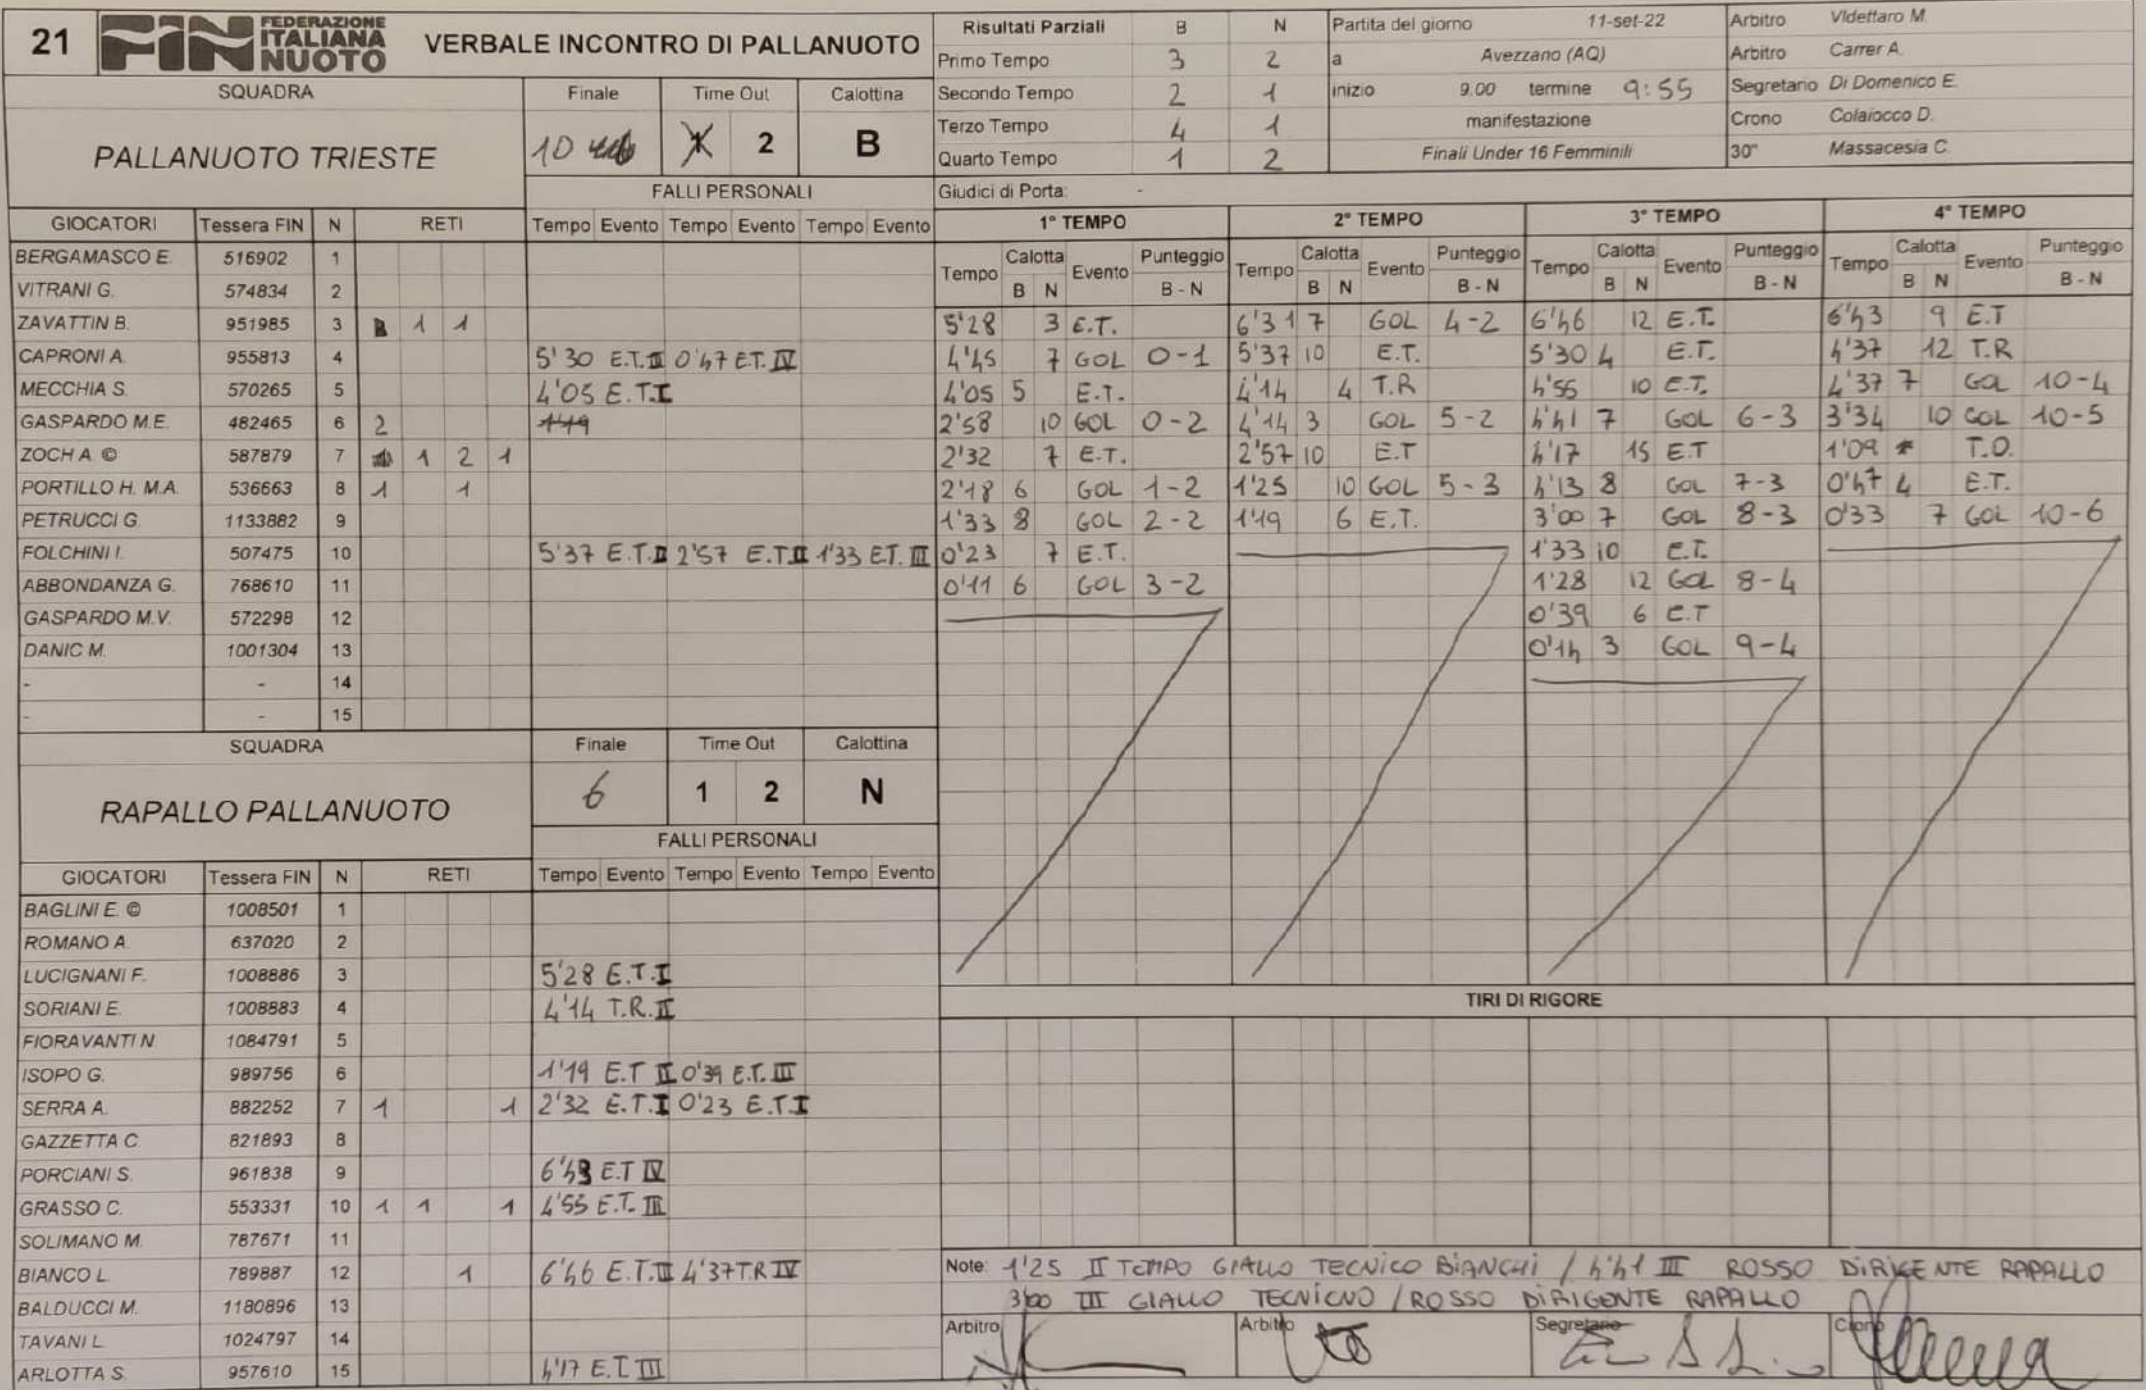 21 FIN FEDERAZIONE ITALIANA NUOTO VERBALE INCONTRO DI PALLANUOTO
Risultati Parziali B N
Primo Tempo 3 2
Secondo Tempo 2 1
Terzo Tempo 4 1
Quarto Tempo 1 2
Partita del giorno 11-set-22
a Avezzano (AQ)
inizio 9.00 termine 9:55
manifestazione
Finali Under 16 Femminili
Arbitro VIdettaro M.
Arbitro Carrer A.
Segretario Di Domenico E.
Crono Colaiocco D.
30" Massacesia C.
Giudici di Porta: -
SQUADRA Finale Time Out Calottina
PALLANUOTO TRIESTE 10 1 2 B
FALLI PERSONALI
GIOCATORI Tessera FIN N RETI Tempo Evento Tempo Evento Tempo Evento
BERGAMASCO E. 516902 1
VITRANI G. 574834 2
ZAVATTIN B. 951985 3 1 1
CAPRONI A. 955813 4 5'30 E.T. III 0'47 E.T. IV
MECCHIA S. 570265 5 4'05 E.T. I
GASPARDO M.E. 482465 6 2 1'19
ZOCH A. © 587879 7 1 2 1
PORTILLO H. M.A. 536663 8 1 1
PETRUCCI G. 1133882 9
FOLCHINI I. 507475 10 5'37 E.T. II 2'57 E.T. II 1'33 E.T. III
ABBONDANZA G. 768610 11
GASPARDO M.V. 572298 12
DANIC M. 1001304 13
- - 14
- - 15
SQUADRA Finale Time Out Calottina
RAPALLO PALLANUOTO 6 1 2 N
FALLI PERSONALI
GIOCATORI Tessera FIN N RETI Tempo Evento Tempo Evento Tempo Evento
BAGLINI E. © 1008501 1
ROMANO A. 637020 2
LUCIGNANI F. 1008886 3 5'28 E.T. I
SORIANI E. 1008883 4 4'14 T.R. II
FIORAVANTI N. 1084791 5
ISOPO G. 989756 6 1'19 E.T II 0'39 E.T. III
SERRA A. 882252 7 1 1 2'32 E.T. I 0'23 E.T. I
GAZZETTA C. 821893 8
PORCIANI S. 961838 9 6'43 E.T IV
GRASSO C. 553331 10 1 1 1 4'55 E.T. III
SOLIMANO M. 787671 11
BIANCO L. 789887 12 1 6'46 E.T. III 4'37 T.R IV
BALDUCCI M. 1180896 13
TAVANI L. 1024797 14
ARLOTTA S. 957610 15 4'17 E.T. III
1° TEMPO
Tempo Calotta B N Evento Punteggio B - N
5'28 3 E.T.
4'45 7 GOL 0-1
4'05 5 E.T.
2'58 10 GOL 0-2
2'32 7 E.T.
2'18 6 GOL 1-2
1'33 8 GOL 2-2
0'23 7 E.T.
0'11 6 GOL 3-2
2° TEMPO
Tempo Calotta B N Evento Punteggio B - N
6'31 7 GOL 4-2
5'37 10 E.T.
4'14 4 T.R
4'14 3 GOL 5-2
2'57 10 E.T
1'25 10 GOL 5-3
1'19 6 E.T.
3° TEMPO
Tempo Calotta B N Evento Punteggio B - N
6'46 12 E.T.
5'30 4 E.T.
4'55 10 E.T.
4'41 7 GOL 6-3
4'17 15 E.T
4'13 8 GOL 7-3
3'00 7 GOL 8-3
1'33 10 E.T.
1'28 12 GOL 8-4
0'39 6 E.T
0'14 3 GOL 9-4
4° TEMPO
Tempo Calotta B N Evento Punteggio B - N
6'43 9 E.T
4'37 12 T.R
4'37 7 GOL 10-4
3'34 10 GOL 10-5
1'09 * T.O.
0'47 4 E.T.
0'33 7 GOL 10-6
TIRI DI RIGORE
Note: 1'25 II TEMPO GIALLO TECNICO BIANCHI / 4'41 III ROSSO DIRIGENTE RAPALLO
3'00 III GIALLO TECNICNO / ROSSO DIRIGENTE RAPALLO
Arbitro Arbitro Segretario Crono